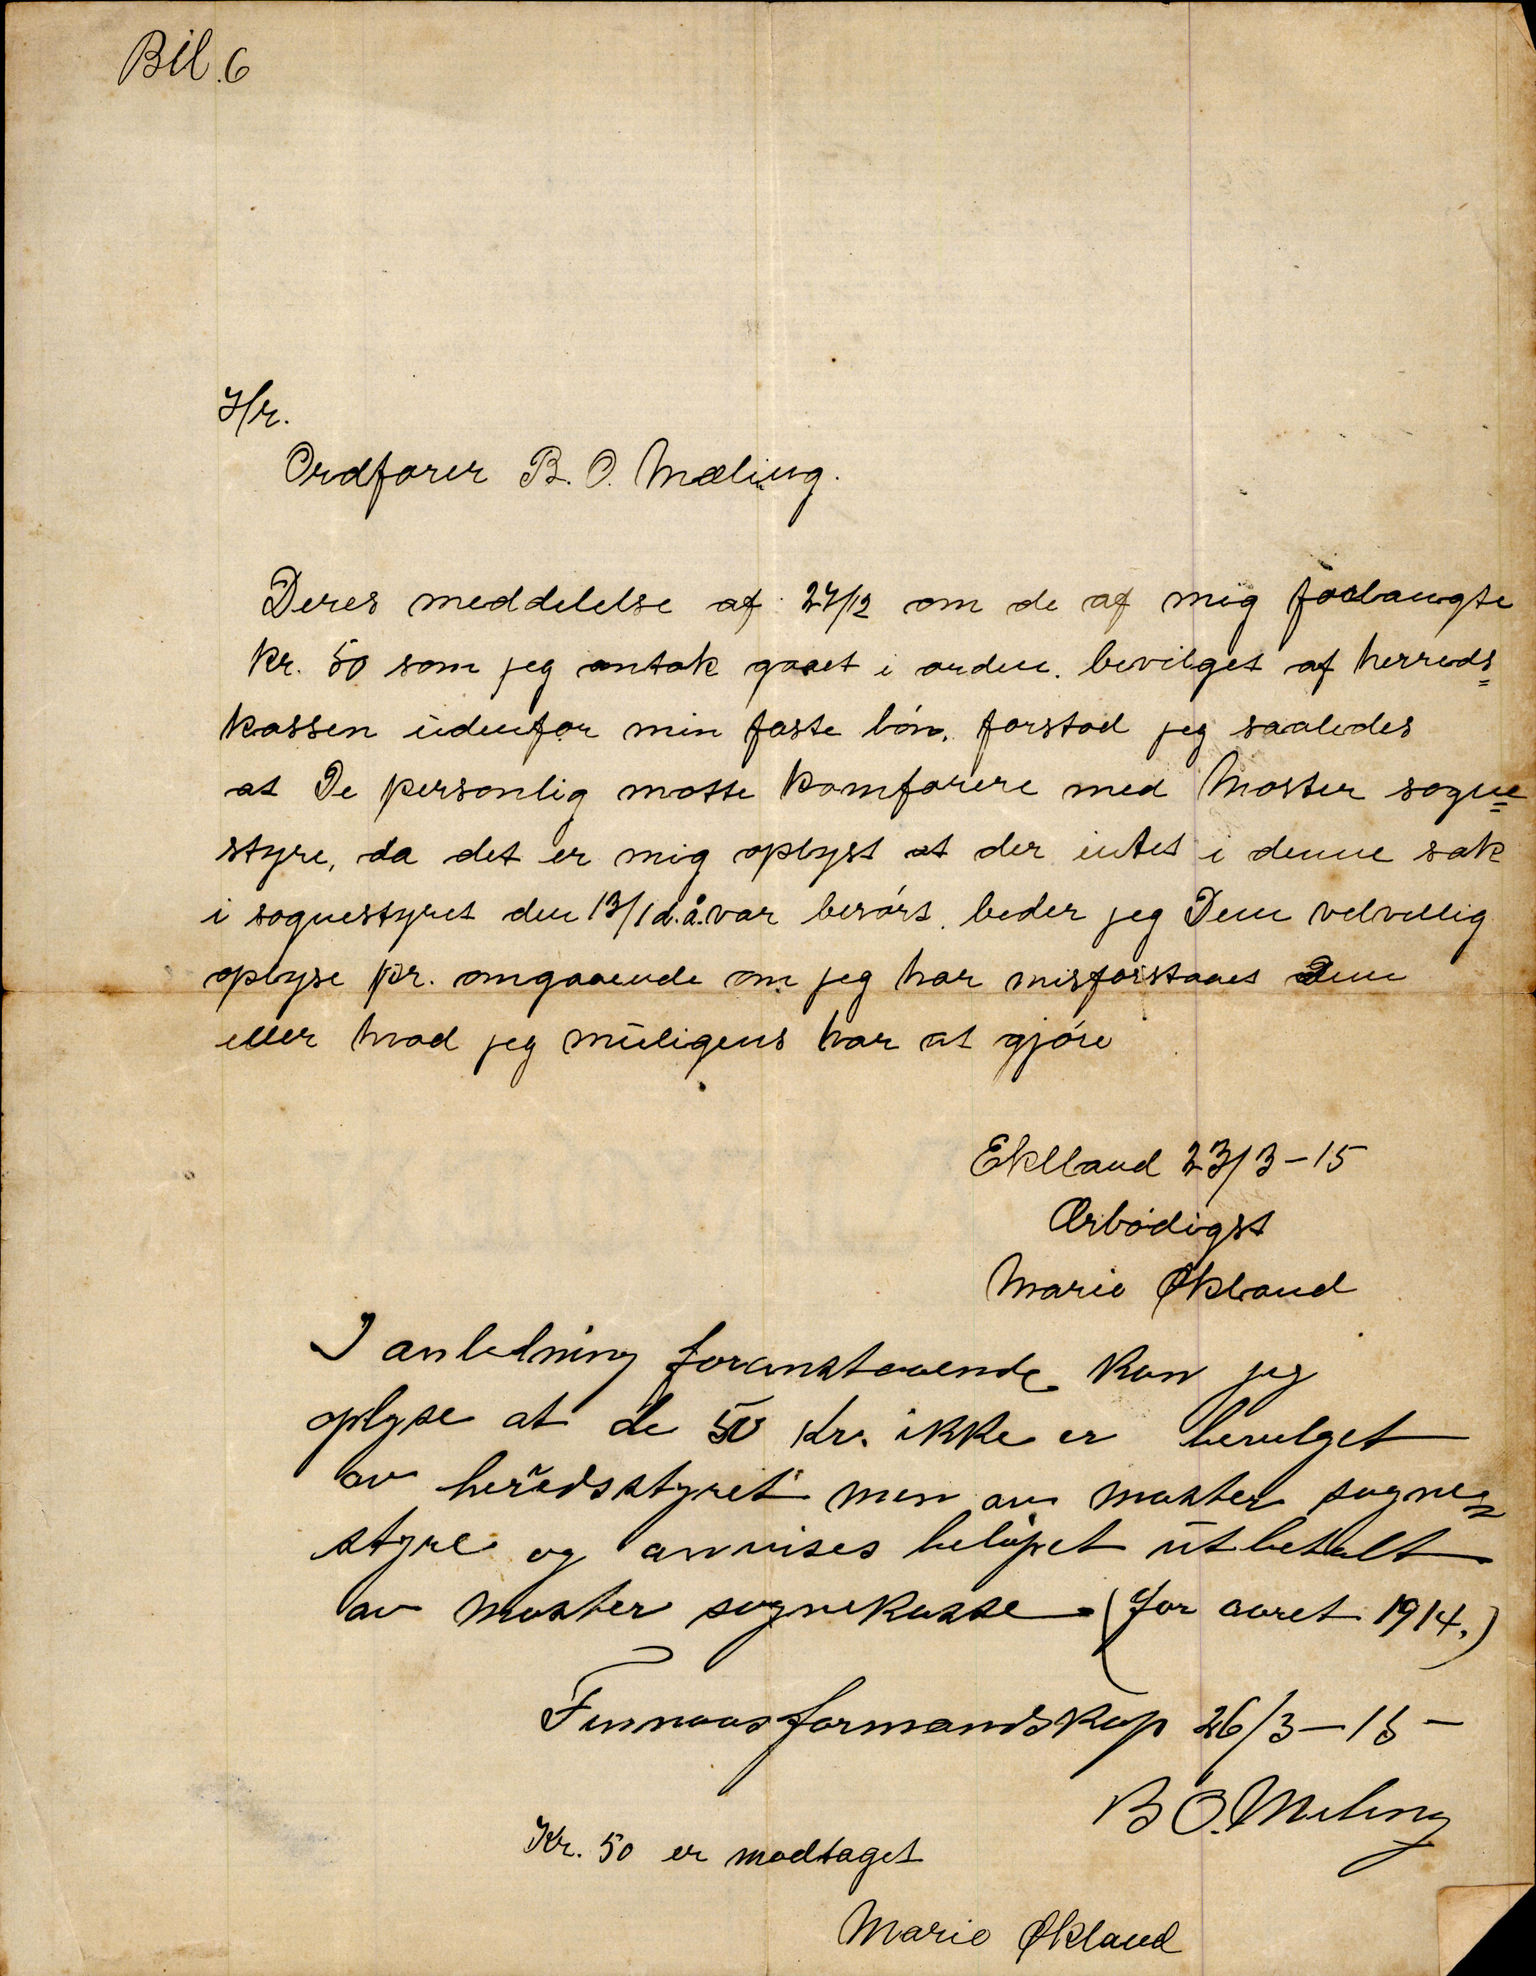 Bil. 6
Hr.
Ordfører B. O. Mæling.
Deres meddelelse af 27/12 om de af mig forlangte
kr. 50 som jeg antok gaaet i orden. bevilget af herreds=
kassen udenfor min faste løn. forstod jeg saaledes
at De personlig maatte komferere med Moster sogne=
styre, da det er mig oplyst at der intet i denne sak
i sognestyret den 13/1 d.å. var berørt. beder jeg Dem velvillig
oplyse pr. omgaaende om jeg har misforstaaet Dem
eller hvad jeg muligens har at gjøre
Eklland 23/3-15
Ærbødigst
Marie Økland
I anledning foranstaaende kan jeg
oplyse at de 50 kr. ikke er bevilget
av heredsstyret men av moster sogne=
styre og anvises beløpet utbetalt
av moster sognekasse (for aaret 1914.)
Finnaas formandskap 26/3-15-
B O. Meling
Kr. 50 er modtaget
Marie Økland